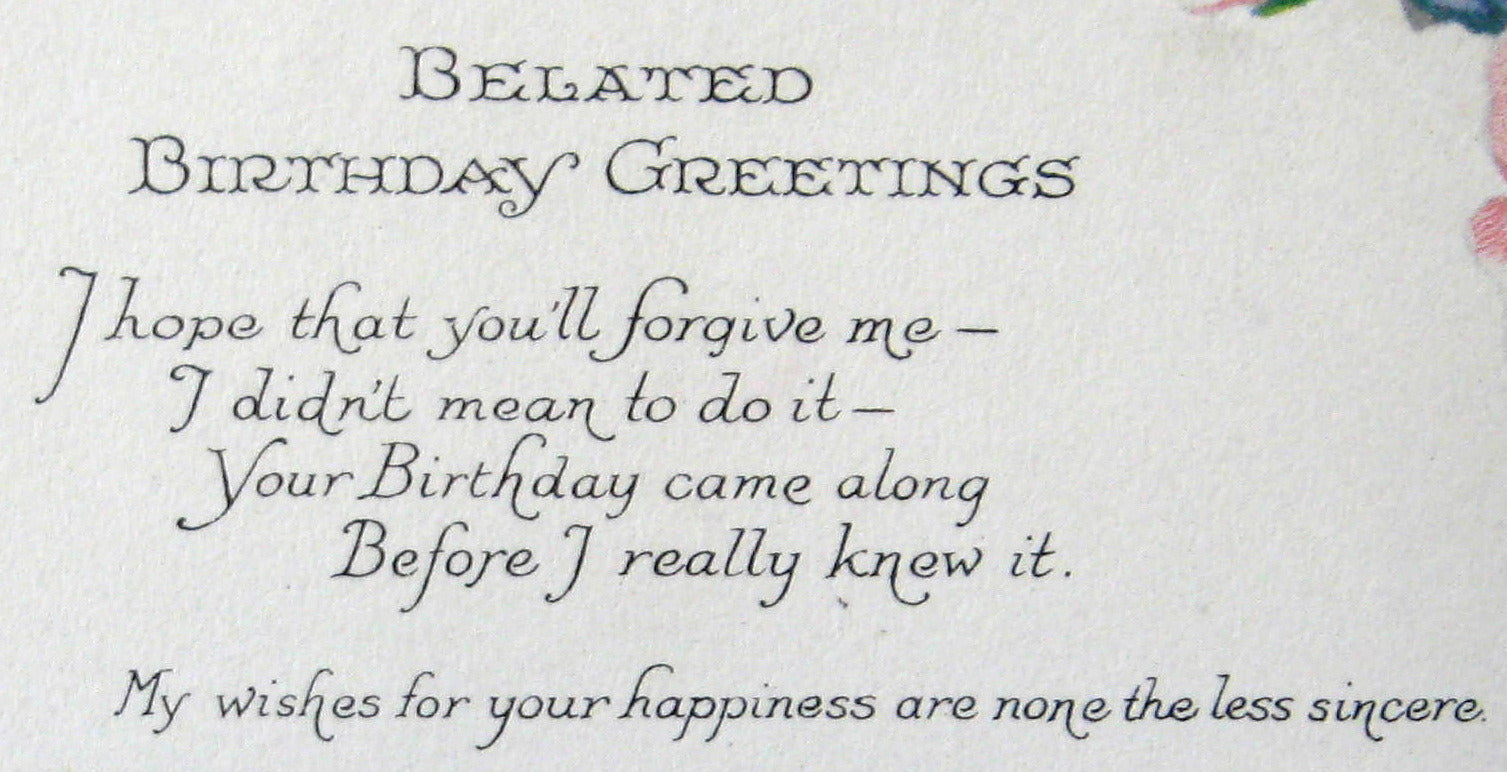 BELATED
BIRTHDAY GREETINGS
I hope that you'll forgive me —
I didn't mean to do it —
Your Birthday came along
Before I really knew it.
My wishes for your happiness are none the less sincere.